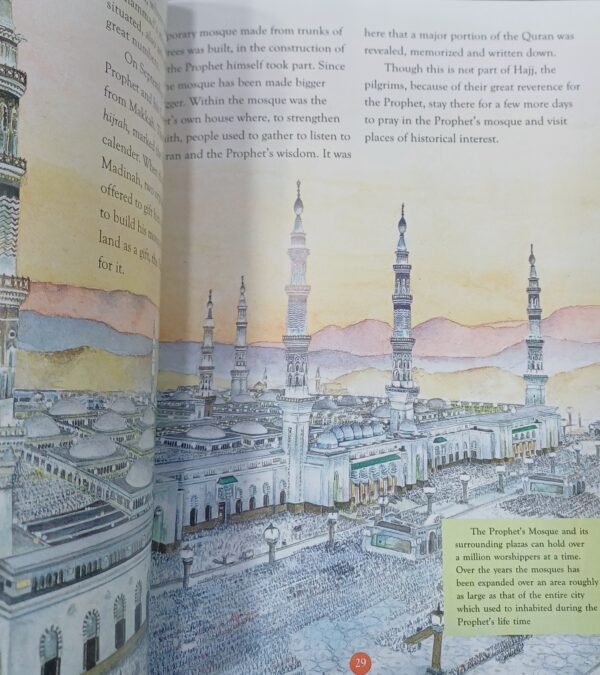 situated,
great number
On Septem
Prophet and
from Makkah
hijrah, marked
calender. Wh
Madinah, two
offered to gift
to build his mos
land as a gift, th
for it.
porary mosque made from trunks of
rees was built, in the construction of
the Prophet himself took part. Since
e mosque has been made bigger
gger. Within the mosque was the
t's own house where, to strengthen
ith, people used to gather to listen to
ran and the Prophet's wisdom. It was
here that a major portion of the Quran was
revealed, memorized and written down.
Though this is not part of Hajj, the
pilgrims, because of their great reverence for
the Prophet, stay there for a few more days
to pray in the Prophet's mosque and visit
places of historical interest.
The Prophet's Mosque and its
surrounding plazas can hold over
a million worshippers at a time.
Over the years the mosques has
been expanded over an area roughly
as large as that of the entire city
which used to inhabited during the
Prophet's life time
29